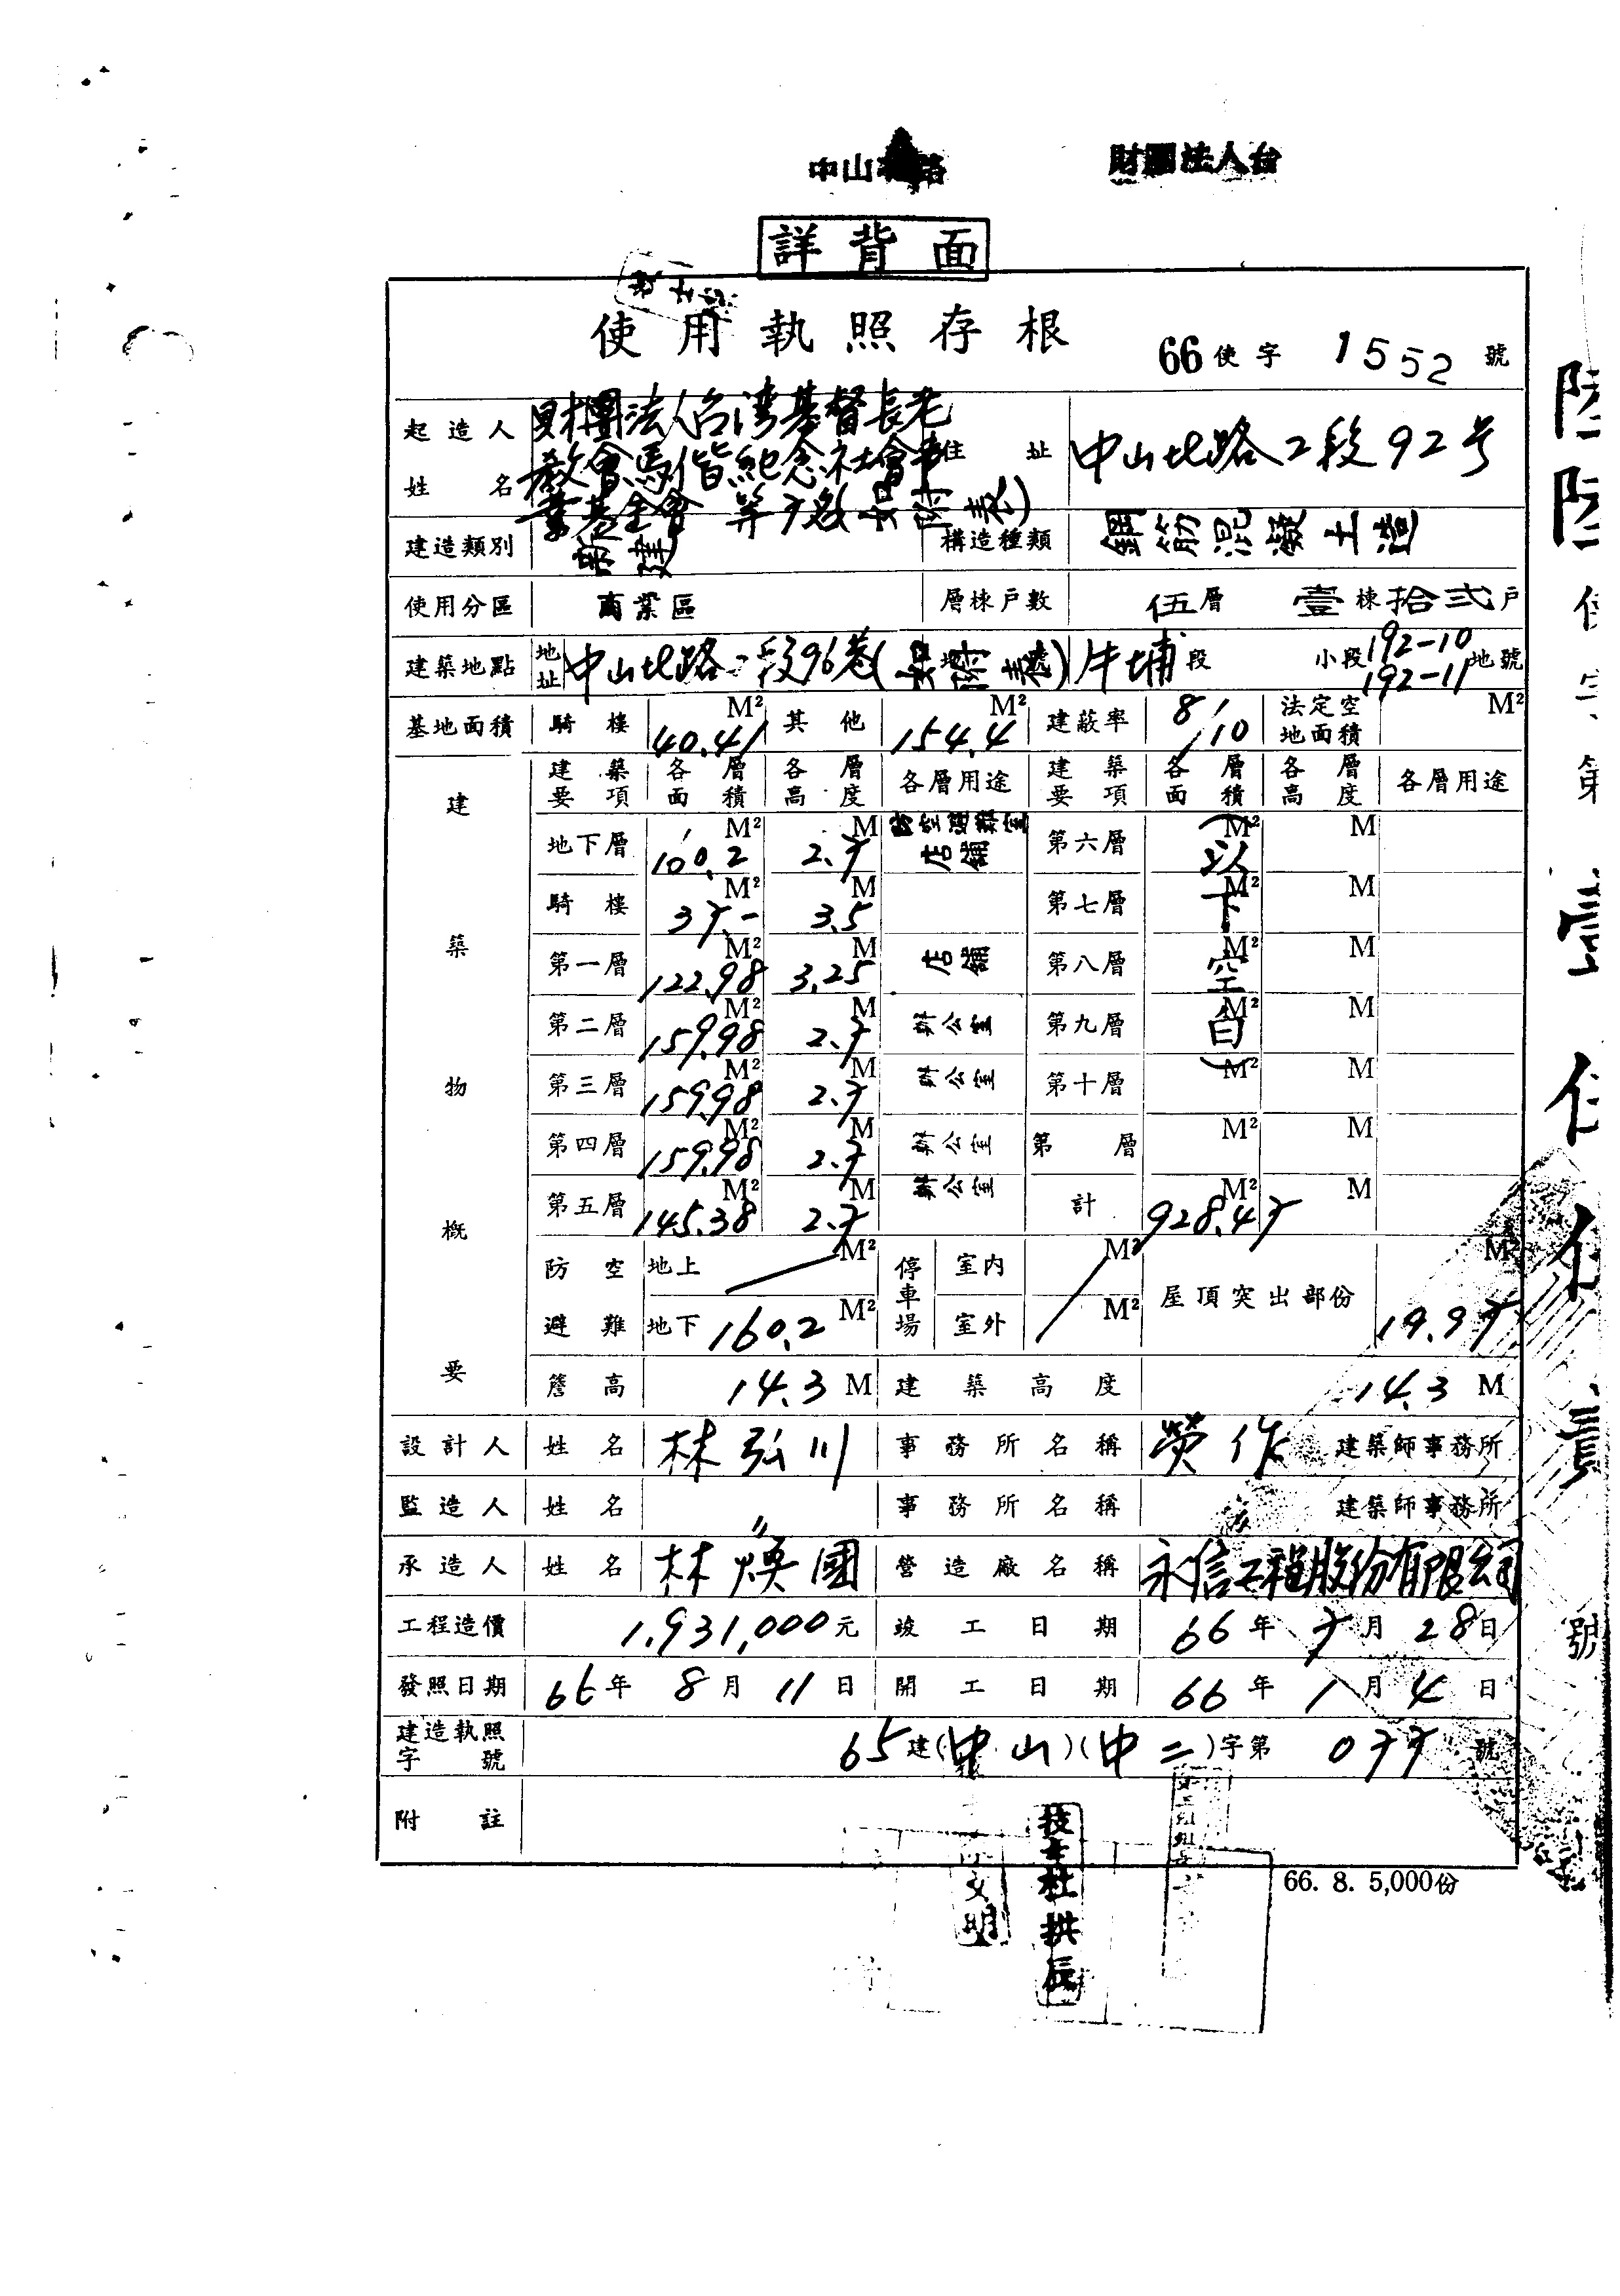 中山 路 財團法人台
詳背面
使用執照存根 66使字 1552 號
起造人姓名 財團法人台湾基督長老 住址 中山北路2段92号
教會馬偕紀念社會事
業基金會 等7名(如附表)
建造類別 新建 構造種類 鋼筋混凝土造
使用分區 商業區 層棟戶數 伍層 壹棟拾弍戶
建築地點 地址 中山北路二段96巷(如附表) 牛埔段 小段 192-10 地號
192-11
基地面積 騎樓 40.41 M² 其他 154.4 M² 建蔽率 8/10 法定空地面積 M²
建築物概要 建築要項 各層面積 各層高度 各層用途 建築要項 各層面積 各層高度 各層用途
地下層 M² 2.7 M 店舖 第六層 M² M
騎樓 37.- M² 3.5 M 第七層 M² M
第一層 122.98 M² 3.25 M 店舖 第八層 M² M
第二層 159.98 M² 2.7 M 辦公室 第九層 M² M
第三層 159.98 M² 2.7 M 辦公室 第十層 M² M
第四層 159.98 M² 2.7 M 辦公室 第 層 M² M
第五層 145.38 M² 2.7 M 辦公室 計 928.47 M² M
(以下空白)
防空避難 地上 M² 停車場 室內 M² 屋頂突出部份 19.97 M²
地下 160.2 M² 室外 M²
簷高 14.3 M 建築高度 14.3 M
設計人 姓名 林弘川 事務所名稱 建築師事務所
監造人 姓名 〃 事務所名稱 建築師事務所
承造人 姓名 林煥國 營造廠名稱 永信工程股份有限公司
工程造價 1,931,000元 竣工日期 66年7月28日
發照日期 66年8月11日 開工日期 66年1月4日
建造執照字號 65建(中山)(中二)字第 077 號
附註
技士杜拱辰
文明
66. 8. 5,000份